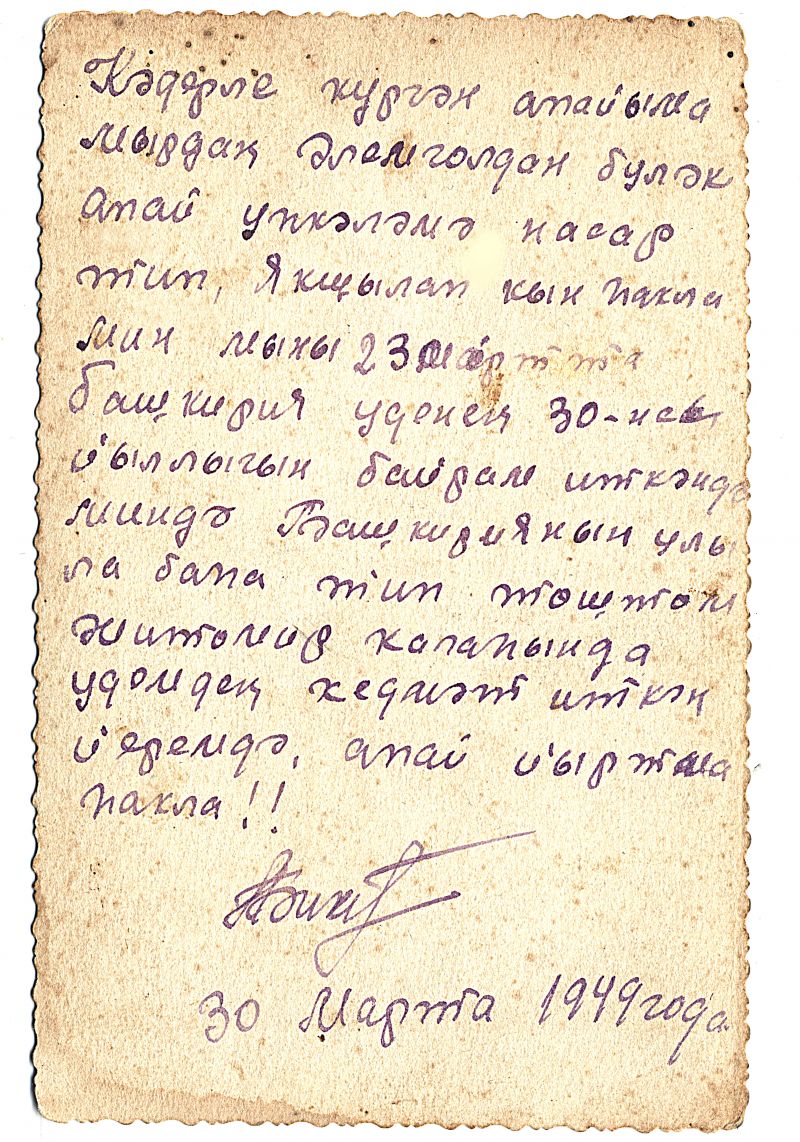 Кәдерле күргән апайыма
мырдаң Әлемголдан бүләк
Апай үпкәләмә насар
тип, Якщылап кын һакла
мин мыны 23 мартта
Башкирия үденең 30-нсы
йыллыгын байрам иткәндә
миндә Башкириянын улы
ла бапа тип тоштом
Житомир калапында
үдемдең хедмәт иткән
йеремдә, апай йыртма
һакла!!
30 Марта 1949 года